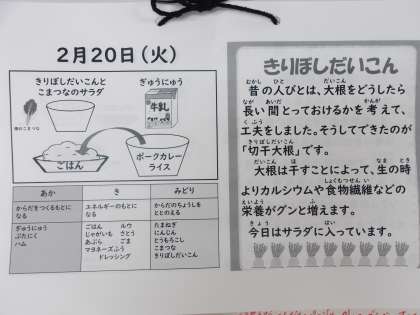 2月20日(火)
きりぼしだいこんと
こまつなのサラダ
ぎゅうにゅう
牛乳
ごはん
ポークカレー
ライス
あか
き
みどり
からだをつくるもとに
なる
エネルギーのもとに
なる
からだのちょうしを
ととのえる
ぎゅうにゅう
ぶたにく
ハム
ごはん ルウ
じゃがいも さとう
あぶら ごま
マヨネーズふう
ドレッシング
たまねぎ
にんじん
とうもろこし
こまつな
きりぼしだいこん
きりぼしだいこん
昔の人びとは、大根をどうしたら
長い間とっておけるかを考えて、
工夫をしました。そうしてできたのが
「切干大根」です。
大根は干すことによって、生の時
よりカルシウムや食物繊維などの
栄養がグンと増えます。
今日はサラダに入っています。